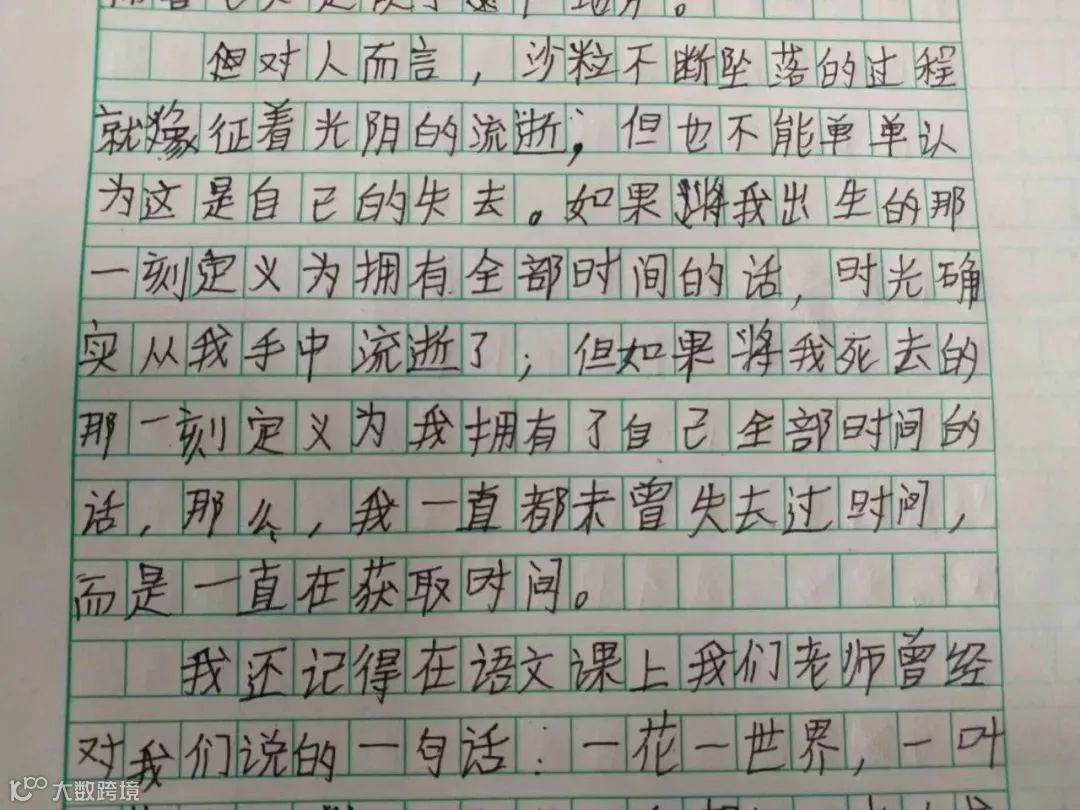 但对人而言，沙粒不断坠落的过程
就像征着光阴的流逝；但也不能单单认
为这是自己的失去。如果将我出生的那
一刻定义为拥有全部时间的话，时光确
实从我手中流逝了；但如果将我死去的
那一刻定义为我拥有了自己全部时间的
话，那么，我一直都未曾失去过时间，
而是一直在获取时间。
我还记得在语文课上我们老师曾经
对我们说的一句话：一花一世界，一叶
大数跨境